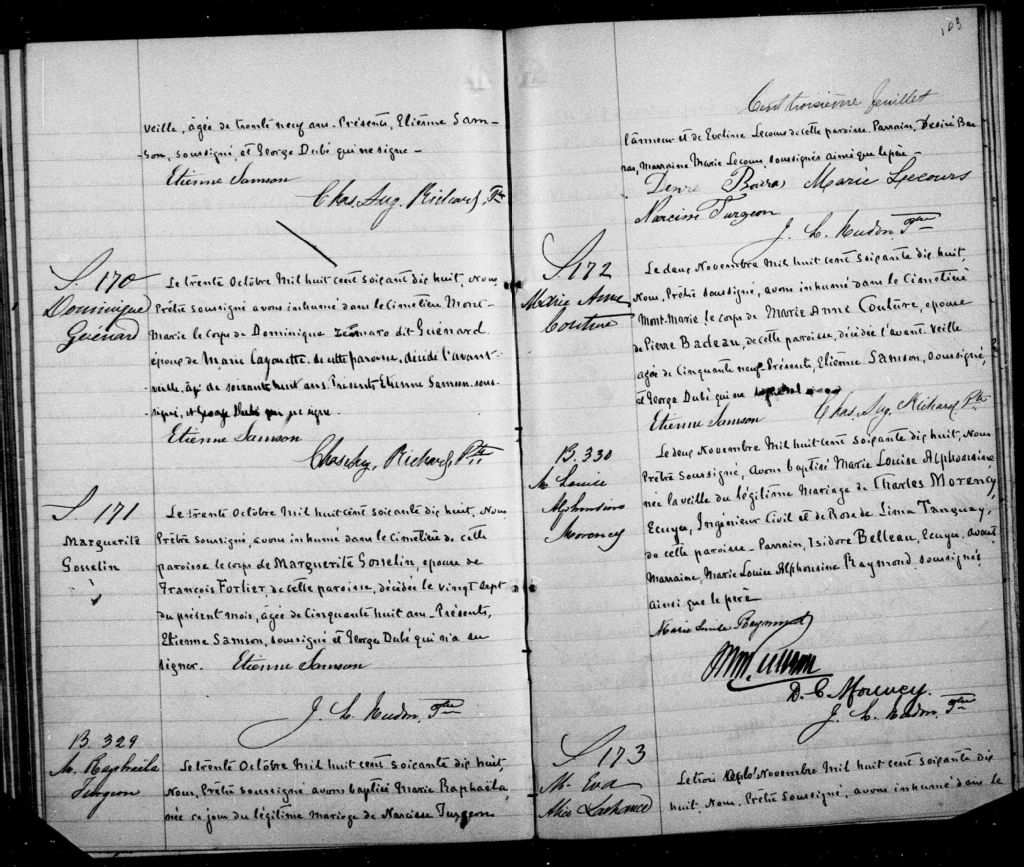 veille, âgée de trente neuf ans. Présents, Etienne Sam-
-son, soussigné, et George Dubé qui ne signe -
Etienne Samson
Chas. Aug. Richard, Ptre
S. 170
Dominique
Guénard
Le trente Octobre Mil huit cent soixante dix huit, Nous,
Prêtre soussigné avons inhumé dans le Cimetière Mont-
Marie le corps de Dominique dit Guénard
époux de Marie Cayouette de cette paroisse, décédé l'avant-
veille, âgé de soixante huit ans. Présents Etienne Samson sous-
signé, et George Dubé qui ne signe.
Etienne Samson
Chas Aug. Richard, Ptre
S. 171
Marguerite
Gosselin
Le trente Octobre Mil huit cent soixante dix huit, Nous
Prêtre soussigné, avons inhumé dans le cimetière de cette
paroisse le corps de Marguerite Gosselin, épouse de
François Fortier, de cette paroisse, décédée le vingt sept
du présent mois, âgée de Cinquante huit ans - Présents,
Etienne Samson, soussigné et George Dubé qui n'a su
signer. Etienne Samson
Ptre
B. 329
M. Raphaëla
Turgeon
Le trente Octobre Mil huit cent soixante dix huit,
Nous, Prêtre soussigné avons baptisé Marie Raphaëla,
née ce jour du légitime mariage de Narcisse Turgeon
103
Cent troisième feuillet
et de Eveline Lecours de cette paroisse. Parrain, Désiré
Marraine Marie Lecours, soussignés ainsi que le père -
Marie Lecours
Narcisse Turgeon
Ptre
S. 172
Marie Anne
Couture
Le deux Novembre Mil huit cent soixante dix huit,
Nous, Prêtre soussigné, avons inhumé dans le Cimetière
Mont-Marie, le corps de Marie Anne Couture, épouse
de Pierre Badeau, de cette paroisse, décédée l'avant veille
âgée de Cinquante neuf - Présents, Etienne Samson, soussigné,
et George Dubé qui ne
Etienne Samson Chas. Aug. Richard Ptre
B. 330
M. Louise
Alphonsine
Morency
Le deux Novembre Mil huit cent soixante dix huit, Nous
Prêtre soussigné, avons baptisé Marie Louise Alphonsine
née la veille du légitime Mariage de Charles Morency,
Ecuyer, Ingénieur Civil et de Rose de Lima Tanguay,
de cette paroisse - Parrain, Isidore Belleau, Ecuyer, avocat
Marraine, Marie Louise Alphonsine Raymond soussignés
ainsi que le père
Marie Louise Raymond
Morency.
Ptre
S 173
M. Eva
Alice Lachance
Le trois Novembre Mil huit cent soixante dix
huit. Nous, Prêtre soussigné, avons inhumé dans le